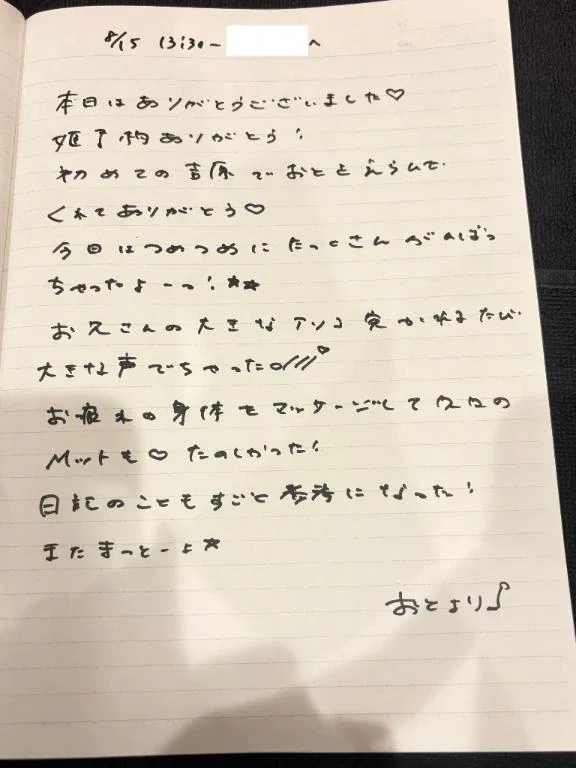 8/15 13:30~ へ
本日はありがとうございました♡
姫予約ありがとう!
初めての吉原でおとをえらんで
くれてありがとう♡
今日はつめつめにたっくさんがんばっ
ちゃったよーっ!★★
お兄さんの大きなアソコ突かれるたび
大きな声でちゃった♡///
お疲れの身体をマッサージして久々の
マットも♡たのしかった!
日記のこともすごく参考になった!
またまっとーよ★
おとより♪